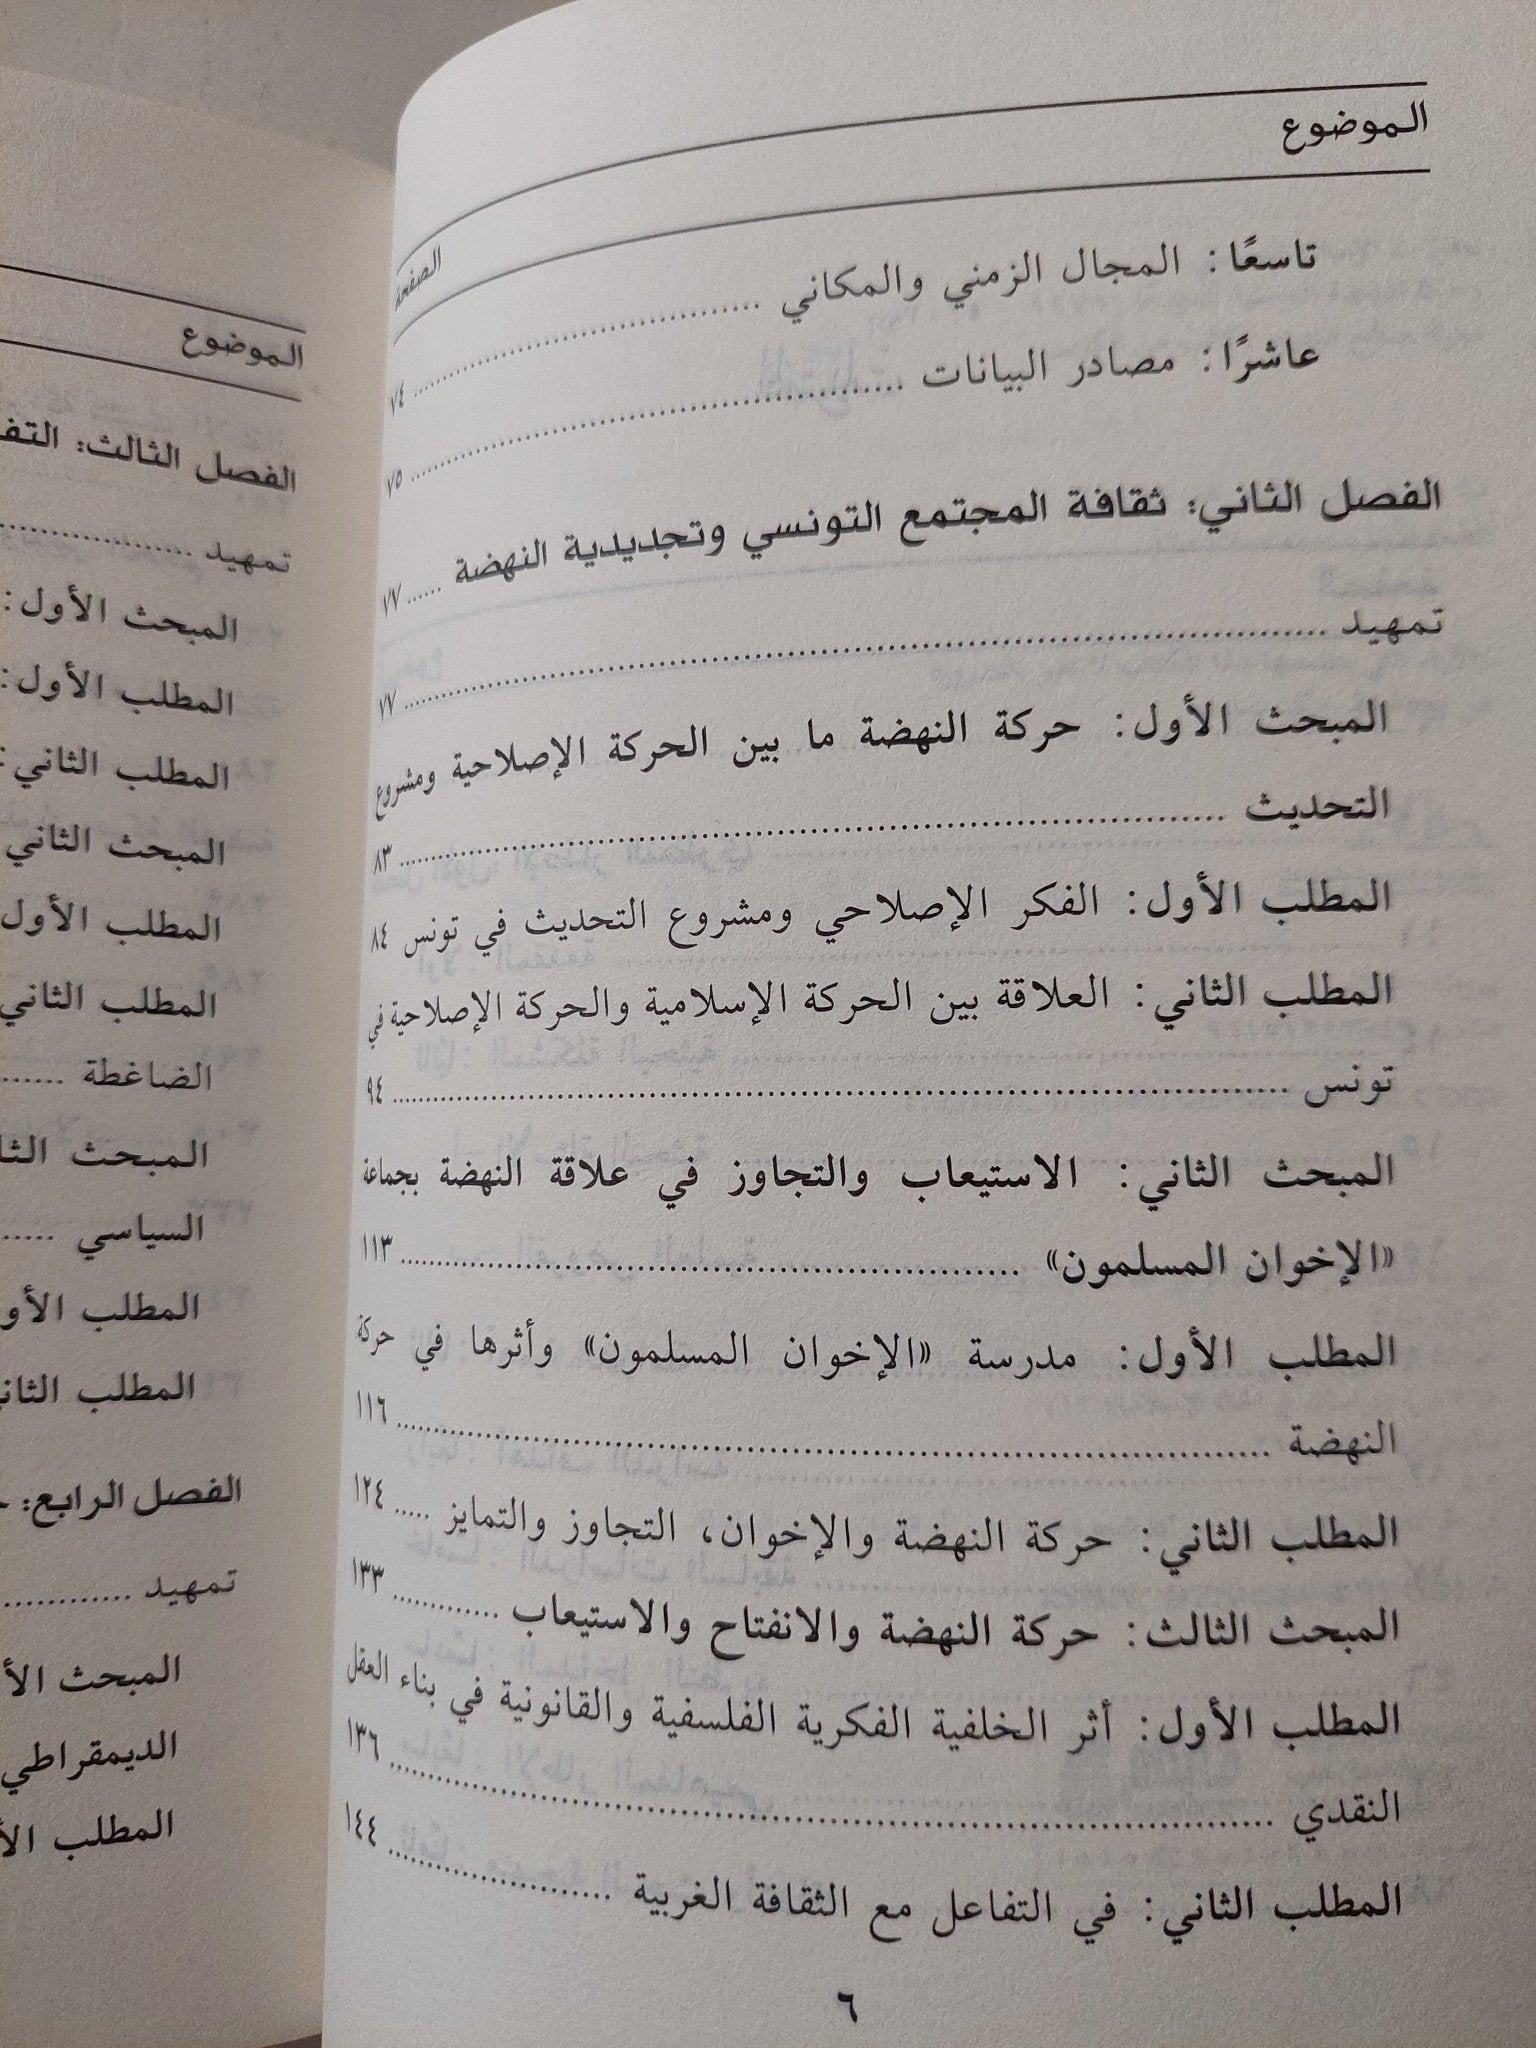 الموضوع
الصفحة
تاسعًا: المجال الزمني والمكاني ........ ٧٤
عاشرًا: مصادر البيانات ........ ٧٥
الفصل الثاني: ثقافة المجتمع التونسي وتجديدية النهضة ...... ٧٧
تمهيد ........ ٧٧
المبحث الأول: حركة النهضة ما بين الحركة الإصلاحية ومشروع
التحديث ........ ٨٣
المطلب الأول: الفكر الإصلاحي ومشروع التحديث في تونس ٨٤
المطلب الثاني: العلاقة بين الحركة الإسلامية والحركة الإصلاحية في
تونس ........ ٩٤
المبحث الثاني: الاستيعاب والتجاوز في علاقة النهضة بجماعة
«الإخوان المسلمون» ........ ١١٣
المطلب الأول: مدرسة «الإخوان المسلمون» وأثرها في حركة
النهضة ........ ١١٦
المطلب الثاني: حركة النهضة والإخوان، التجاوز والتمايز ..... ١٢٤
المبحث الثالث: حركة النهضة والانفتاح والاستيعاب ........ ١٣٣
المطلب الأول: أثر الخلفية الفكرية الفلسفية والقانونية في بناء العقل
النقدي ........ ١٣٦
المطلب الثاني: في التفاعل مع الثقافة الغربية ........ ١٤٤
٦
الموضوع
الفصل الثالث:
تمهيد ........
المبحث الأول:
المطلب الأول:
المطلب الثاني:
المبحث الثاني
المطلب الأول
المطلب الثاني
الضاغطة ......
المبحث
السياسي .....
المطلب
المطلب
الفصل الرابع:
تمهيد ........
المبحث
الديمقراطي
المطلب